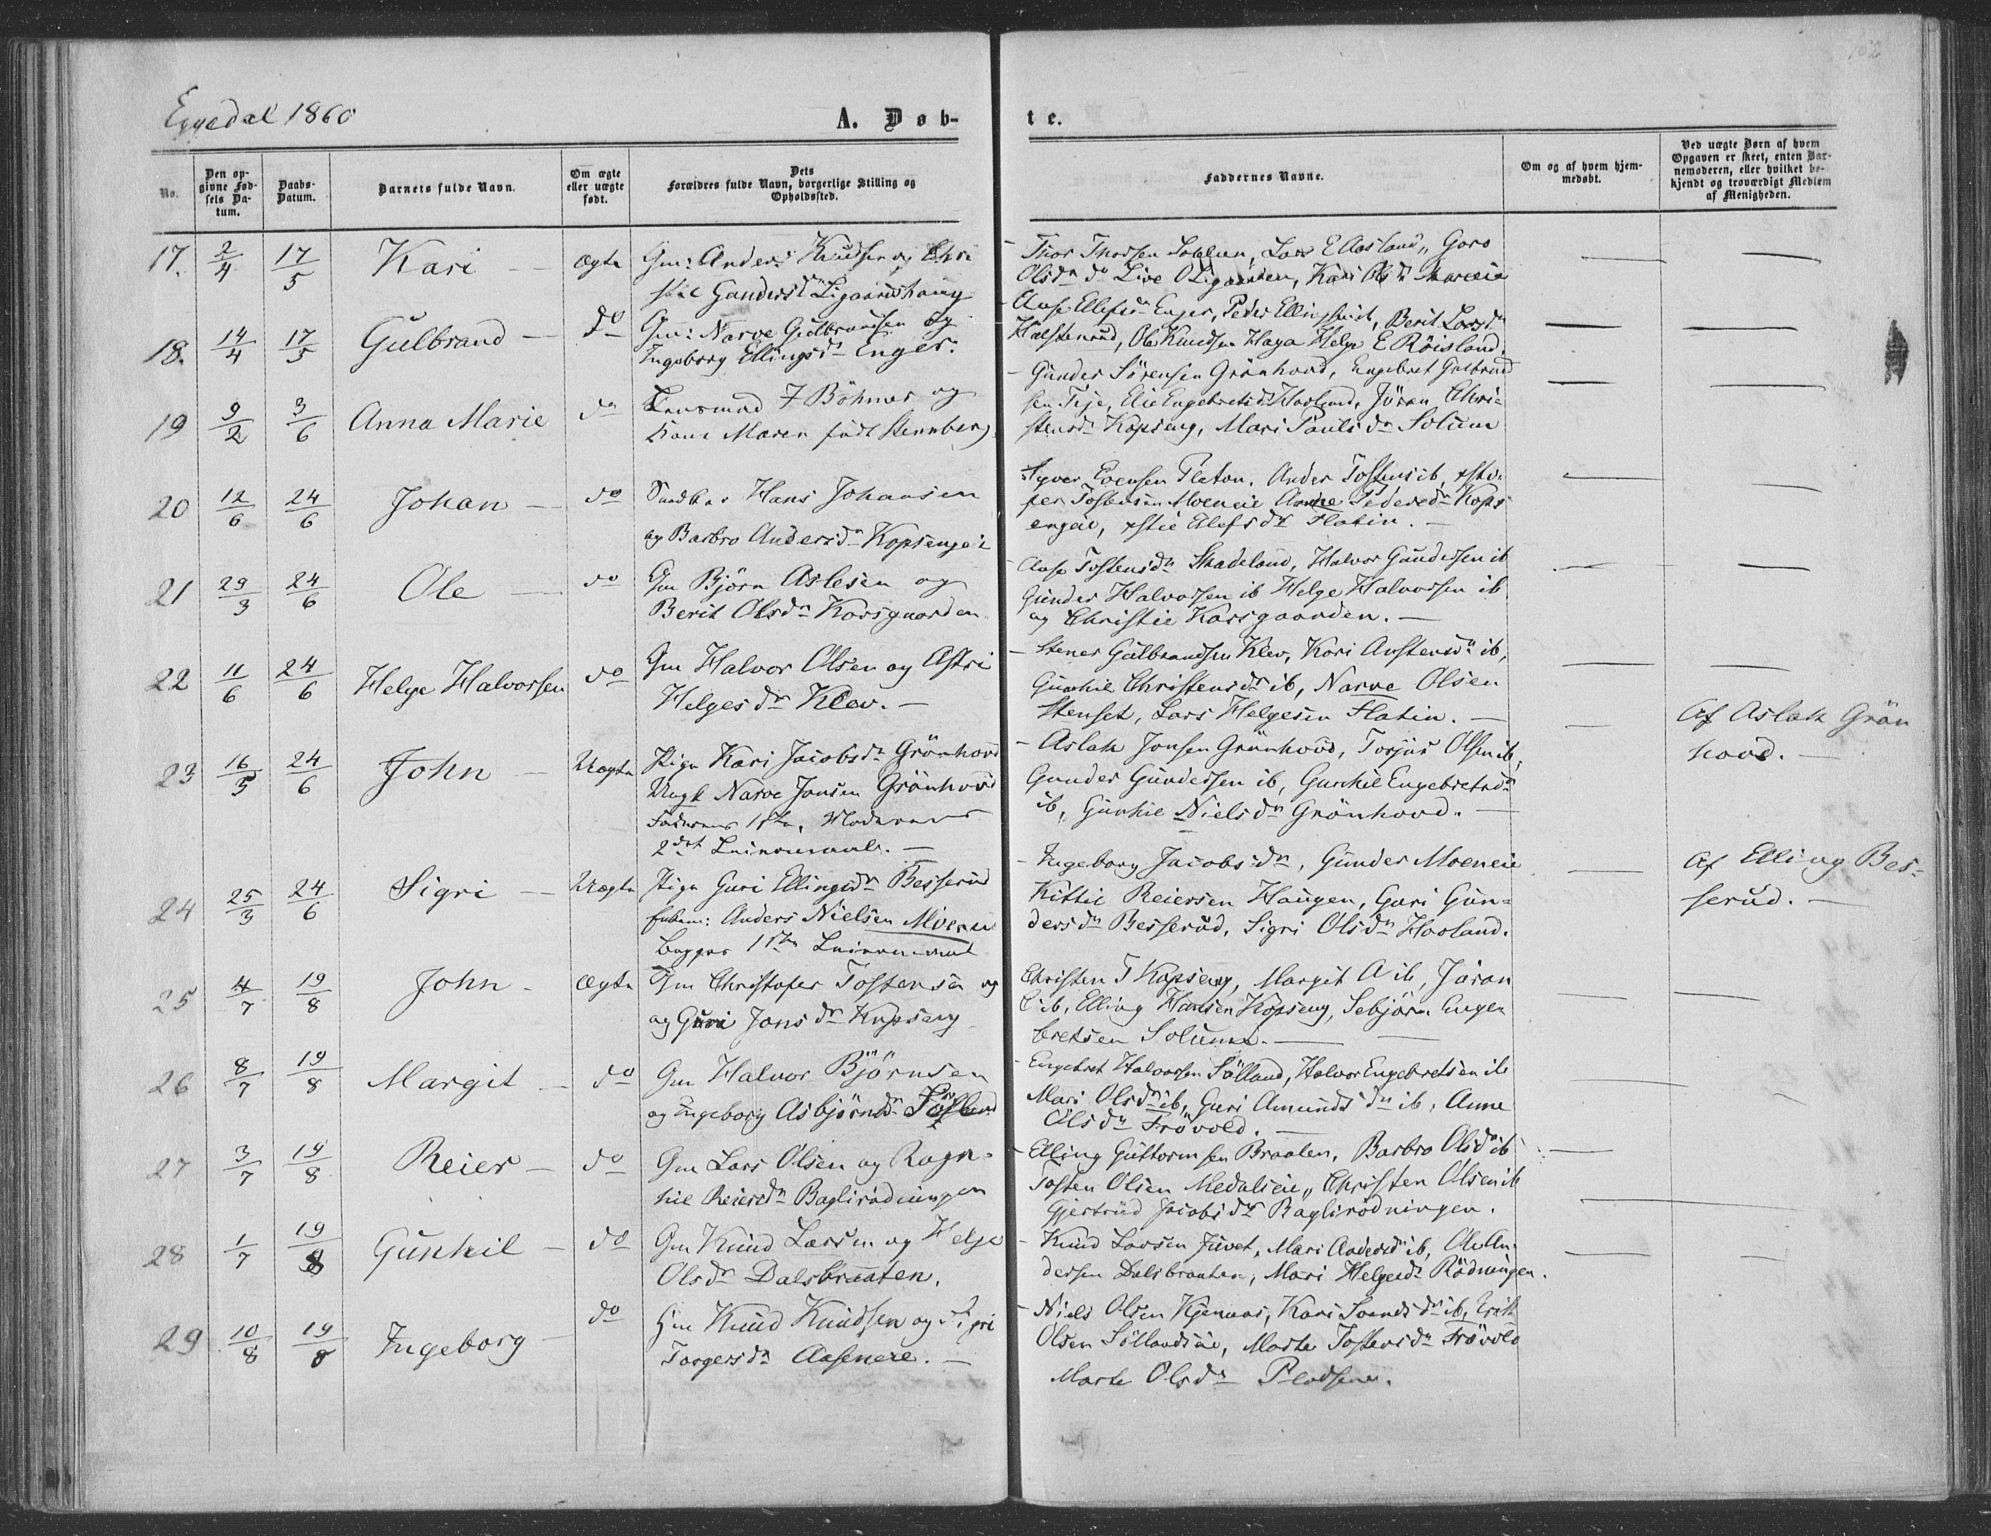 Eggedal 1860
A. Døb-
te.
No.
Den op-
givne Fød-
sels Da-
tum.
Daabs-
Datum.
Barnets fulde Navn.
Om ægte
eller uægte
født.
Dets
Forældres fulde Navn, borgerlige Stilling og
Opholdssted.
Faddernes Navne.
Om og af hvem hjem-
medøbt.
Ved uægte Børn af hvem
Opgaven er skeet, enten Bar-
nemoderen, eller hvilket be-
kjendt og troværdigt Medlem
af Menigheden.
17. 2/4 17/5 Kari — ægte Gm: Anders Knudsen og Chri
stie Gundersdr
Thor Thorsen Solum, Lars E Aasland, Goro
Olsdr do Live O Ligaarden, Kari Olsdr
18. 14/4 17/5 Gulbrand — do Gm: Narve Gulbransen og
Ingeborg Ellingsdr Enger.
Aase Ellefsdr Enger, Peder Ellingsen ib, Berit Larsdr
Halstenrud, Ole Knudsen Haga Helge E Röisland.
19 9/2 3/6 Anna Marie do Lensmand F Böhmer og
Kone Maren født Stenberg
Gunder Sörensen Grönhovd, Engebret Gulbrand
sen Teje, Elie Engebretsdr Haslund, Jöran Chri-
stensdr Kopseng, Mari Paulsdr Solum
20 12/6 24/6 Johan — do Hans Johansen
og Barbro Andersdr Kopsengeie
Syver Evensen Flaton, Anders Tostens ib, Xsto-
fer Tostensen Moeneie Anne Pedersdr Kops
engeie, Xstie Elefsdr Flatin. —
21 29/3 24/6 Ole — do Gm Björn Aslesen og
Berit Olsdr Korsgaarden
Aase Tostensdr Skadeland, Halvor Gundersen ib
Gunder Halvorsen ib Helge Halvorsen ib
og Christie Korsgaarden. —
22 11/6 24/6 Helge Halvorsen do Gm Halvor Olsen og Astri
Helgesdr Klev. —
Stener Gulbrandsen Klev, Kari Austensdr ib,
Gunhil Christensdr ib, Narve Olsen
Stenset, Lars Helgesen Flatin. —
23 16/5 24/6 John — Uægte Pige Kari Jacobsdr Grönhovd
Ungk Narve Jonsen Grönhovd
Faderens 1ste, Moderens
2det Leiermaal. —
Aslak Jonsen Grönhovd, Torjus Olsen ib,
Gunder Gundersen ib, Gunhil Engebretsdr
ib, Gunhil Nielsdr Grönhovd. —
Af Aslak Grön
hovd. —
24 25/3 24/6 Sigri — Uægte Pige Guri Ellingsdr Besserud
Anders Nielsen Moen
begges 1ste Leiermaal
Ingeborg Jacobsdr, Gunder Moeneie
Kittil Reiersen Haugen, Guri Gun-
dersdr Besserud, Sigri Olsdr Haoland.
Af Elling Bes-
serud. —
25 4/7 19/8 John — ægte Gm Christofer Tostensen og
og Guri Jonsdr Kopseng
Christen T Kopseng, Margit A ib, Jöran
C ib, Elling Hansen Kopseng, Sebjörn Enge
bretsen Solum. —
26 8/7 19/8 Margit — do Gm Halvor Björnsen
og Ingeborg Asbjörnsdr Sölland
Engebret Halvorsen Sölland, Halvor Engebretsen ib
Mari Olsdr ib, Guri Amundsdr ib, Anne
Olsdr Frövold. —
27 3/7 19/8 Reier — do Gm Lars Olsen og Ragn-
hil Reiersdr Baglirödningen
Elling Guttormsen Braaten, Barbro Olsdr ib
Tosten Olsen Medalseie, Christen Olsen ib
Gjertrud Jacobsdr Baglirödningen.
28 1/7 19/8 Gunhil — do Gm Knud Larsen og Helge
Olsdr Dalsbraaten.
Knud Larsen Juvet, Mari Andersdr ib, Ole An-
dersen Dalsbraaten, Mari Helgesdr Rödningen.
29 10/8 19/8 Ingeborg — do Hm Knud Knudsen og Sigri
Torgersdr Aaseneie. —
Niels Olsen Kjenaas, Kari Svendsdr ib, Erik
Olsen Söllandseie, Marte Tostensdr Frövold
Marte Olsdr